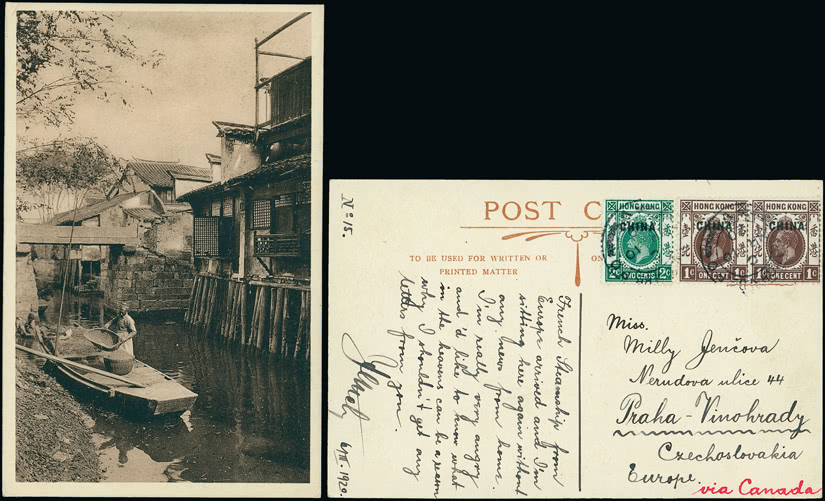 No 15.
POST C
TO BE USED FOR WRITTEN OR
PRINTED MATTER
ON
French Steamship from
Europe arrived and I'm
sitting here again without
any news from home.
I'm really very angry
and I'd like to know what
in the heavens can be a reason
why I shouldn't get any
letters from you.
6/III. 1920.
HONG KONG
CHINA
2c TWO CENTS 2c
HONG KONG
CHINA
1c ONE CENT 1c
HONG KONG
CHINA
1c ONE CENT 1c
Miss.
Milly Jenčova
Nerudova ulice 44
Praha-Vinohrady
Czechoslovakia
Europe.
via Canada